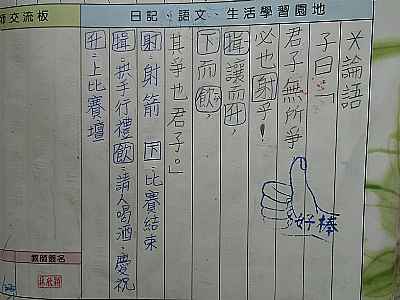 師交流板
日記、語文、生活學習園地
論語
子曰：「
君子無所爭
必也射乎！
揖讓而升，
下而飲，
其爭也君子。」
射：射箭 下：比賽結束
揖：拱手行禮 飲：請人喝酒，慶祝
升：上比賽壇
好棒
教師簽名